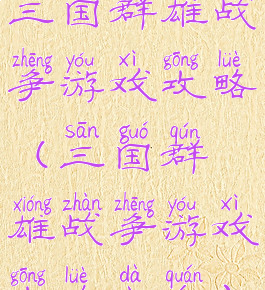 三国群雄战
zhēng yóu xì gōng lüè
争游戏攻略
sān guó qún
(三国群
xióng zhàn zhēng yóu xì
雄战争游戏
gōng lüè dà quán